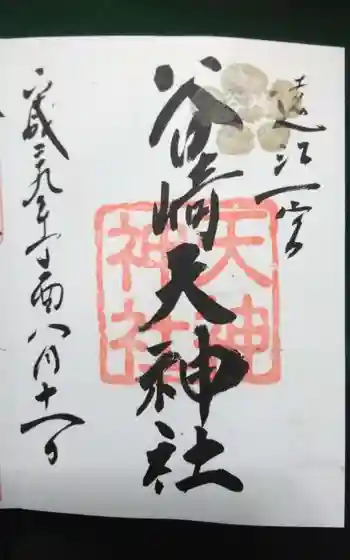 遠江一宮
谷崎天神社
天神
神社
平成二九年丁酉八月十一日